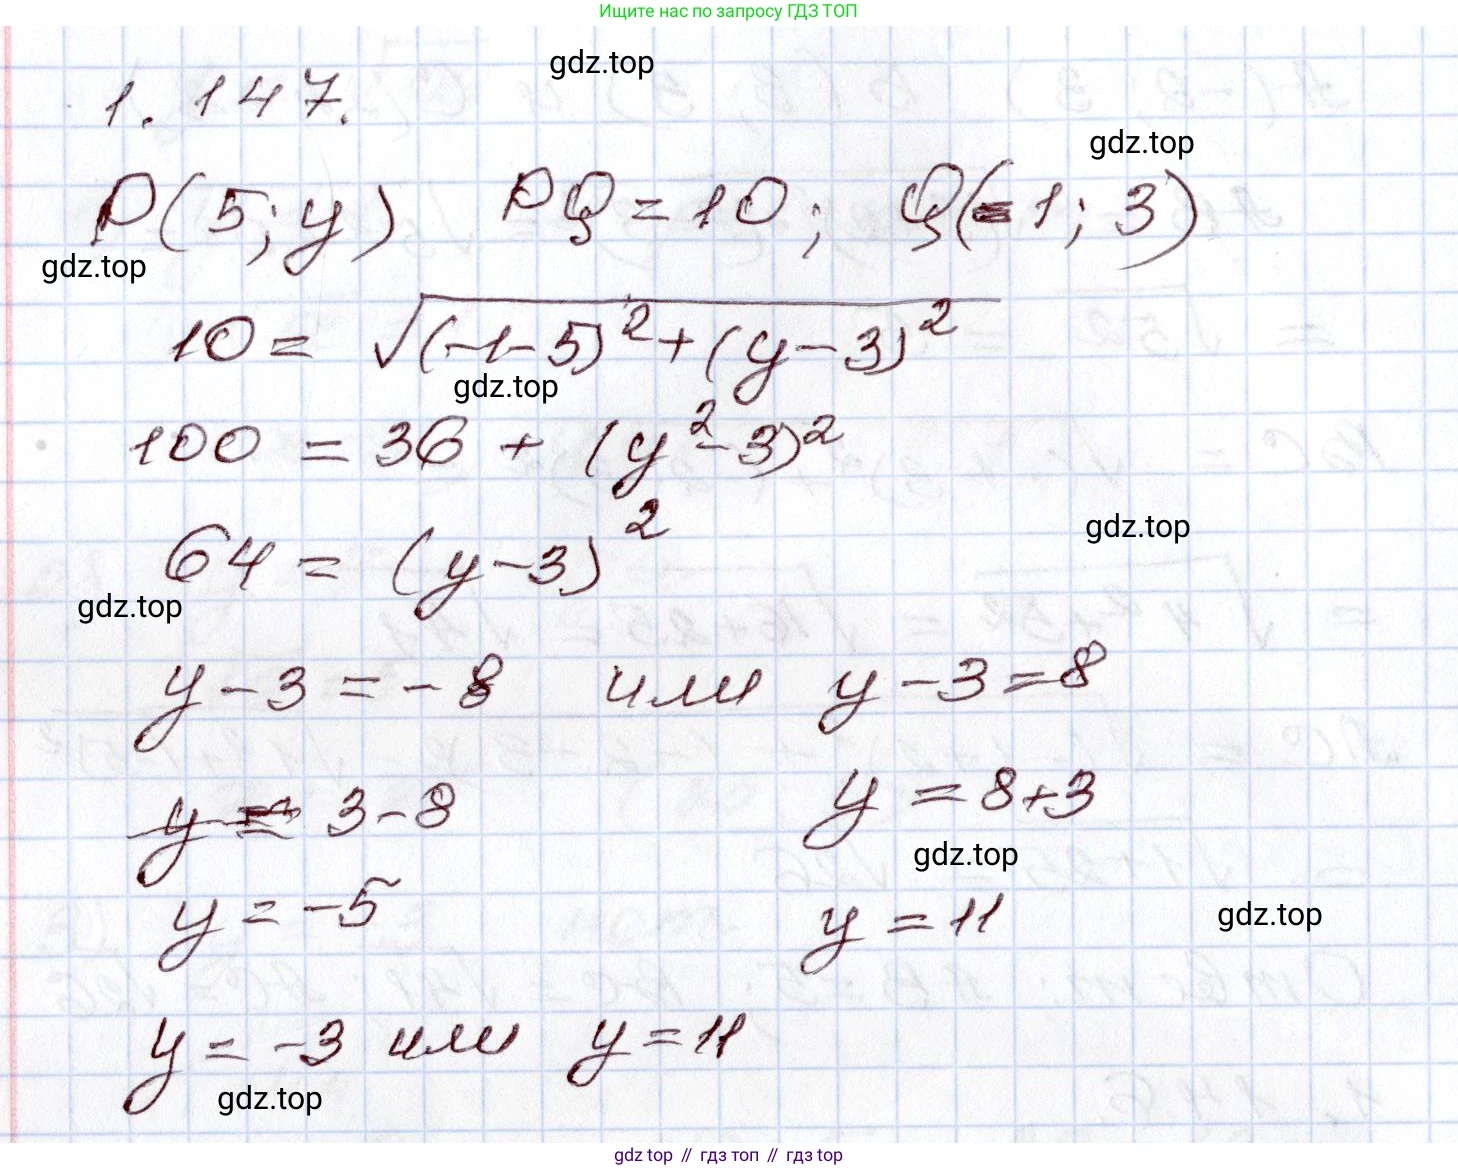 Ищите нас по запросу ГДЗ ТОП
gdz.top
1.147.
gdz.top
P(5; y) PQ = 10; Q(-1; 3)
gdz.top
10 = √((-1-5)² + (y-3)²)
gdz.top
100 = 36 + (y²-3)²
64 = (y-3)²
gdz.top
gdz.top
y-3 = -8 или y-3 = 8
y = 3-8 y = 8+3
gdz.top
y = -5 y = 11
gdz.top
y = -3 или y = 11
gdz.top
gdz top // гдз топ // гдз top